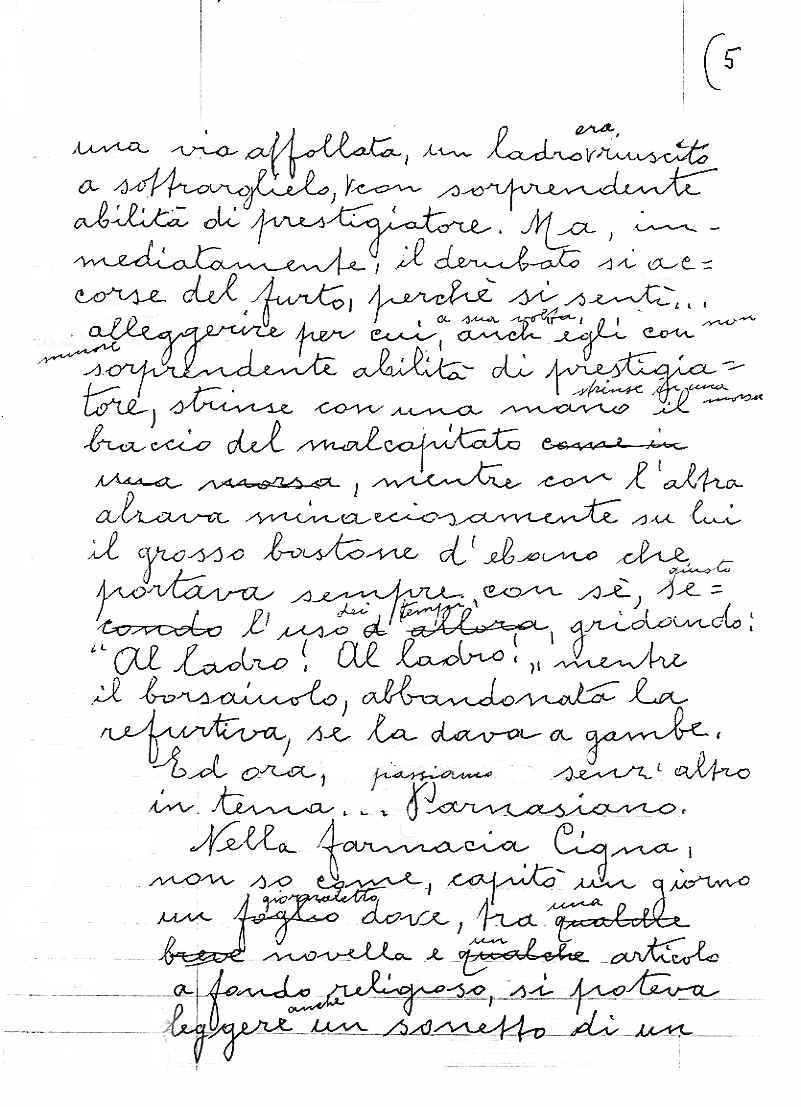 (5
era
una via affollata, un ladro riuscito
a soffraglielo, con sorprendente
abilità di prestigiatore. Ma, im-
mediatamente, il derubato si ac=
corse del furto, perchè si sentì...
a sua volta, non
alleggerire per cui, anch'egli con
minore
sorprendente abilità di prestigia=
strinse in una morsa
tore, strinse con una mano il
braccio del malcapitato come in
una morsa, mentre con l'altra
alzava minacciosamente su lui
il grosso bastone d'ebano che
portava sempre con sè, se=
giusto
condo l'uso d'allora, gridando:
dei tempi
"Al ladro! Al ladro!„ mentre
il borsaiuolo, abbandonata la
refurtiva, se la dava a gambe.
Ed ora, passiamo senz'altro
in tema... Parnasiano.
Nella farmacia Cigna,
non so come, capitò un giorno
giornaletto una
un foglio dove, tra qualche
un
breve novella e qualche articolo
a fondo religioso, si poteva
anche
leggere un sonetto di un